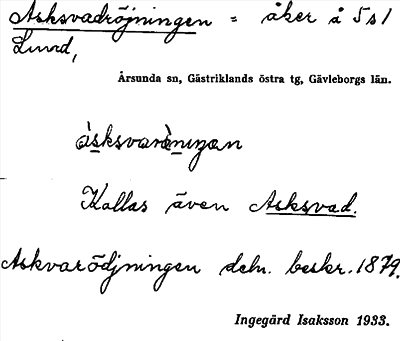 Asksvadröjningen = åker å 5s1
Lund,
Årsunda sn, Gästriklands östra tg, Gävleborgs län.
Kallas även Asksvad.
Askvarödjningen deln. beskr. 1879.
Ingegärd Isaksson 1933.